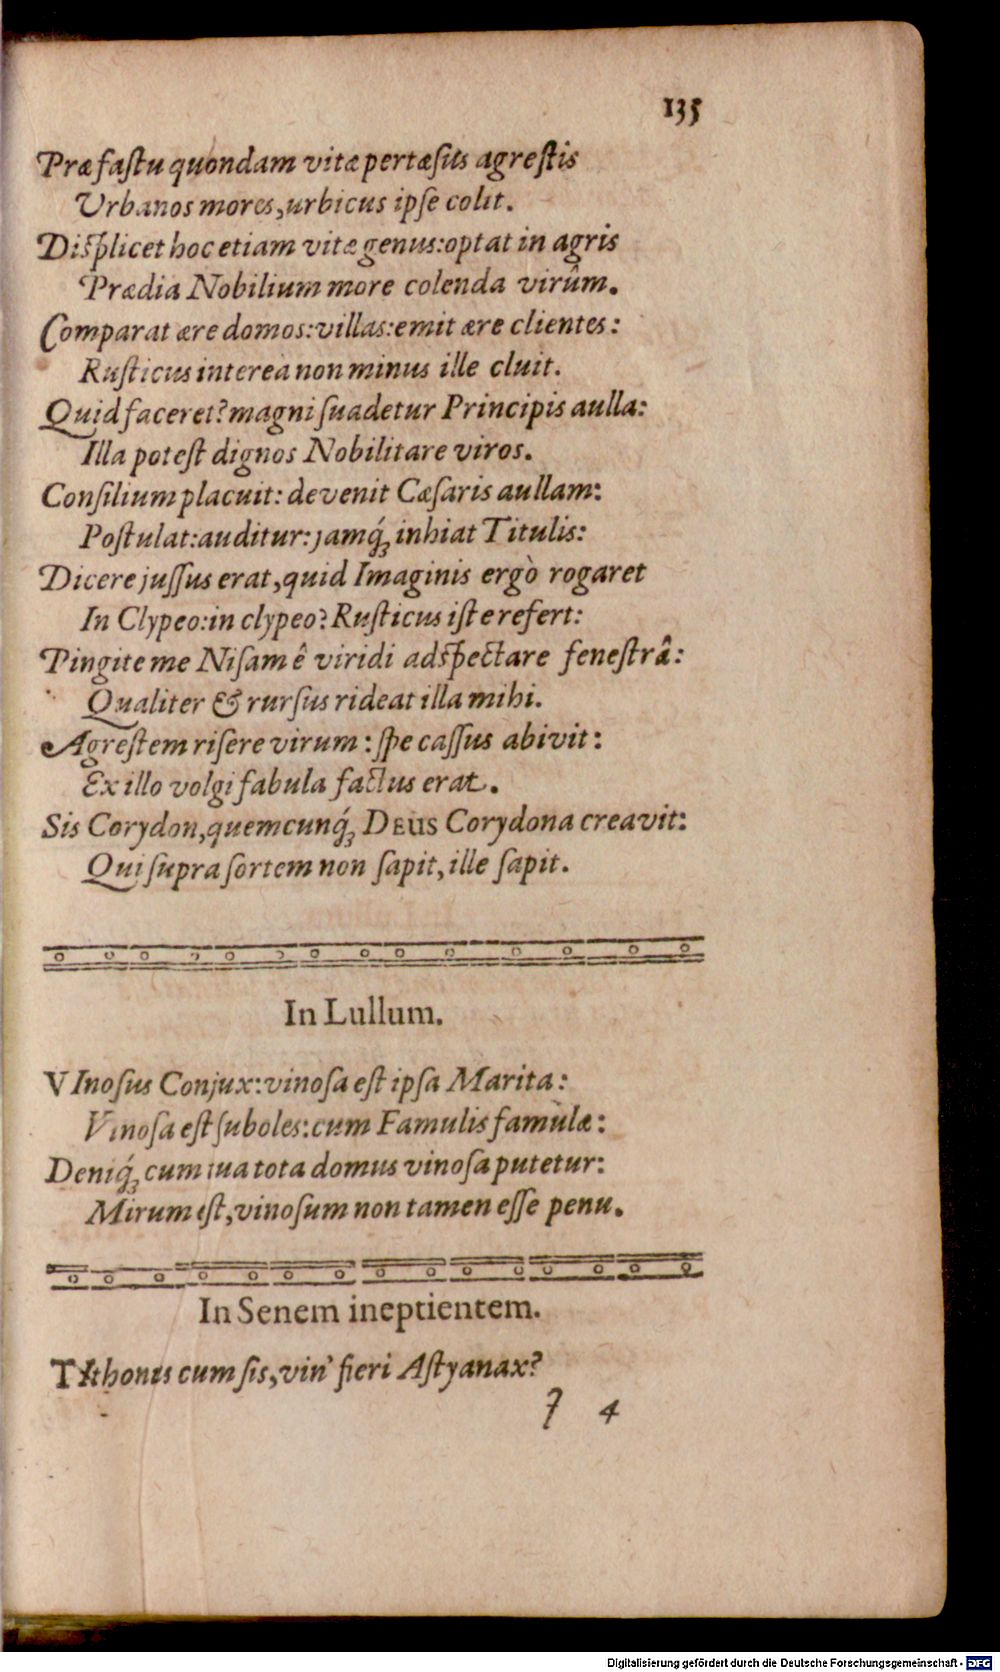 135
Præ faſtu quondam vitæ pertæſus agreſtis
Urbanos mores, urbicus ipſe colit.
Diſplicet hoc etiam vitæ genus: optat in agris
Prædia Nobilium more colenda virûm.
Comparat ære domos: villas: emit ære clientes:
Ruſticus intereà non minus ille cluit.
Quid faceret? magni ſuadetur Principis aulla:
Illa poteſt dignos Nobilitare viros.
Conſilium placuit: devenit Cæſaris aullam:
Poſtulat: auditur: jamq́; inhiat Titulis:
Dicere juſſus erat, quid Imaginis ergò rogaret
In Clypeo: in clypeo? Ruſticus iſte refert:
Pingite me Niſam ê viridi adſpectare feneſtrâ:
Qualiter & rurſus rideat illa mihi.
Agreſtem riſere virum: ſpe caſſus abivit:
Ex illo volgi fabula factus erat.
Sis Corydon, quemcunq́; DEUS Corydona creavit:
Qui ſupra ſortem non ſapit, ille ſapit.
In Lullum.
VInoſus Conjux: vinoſa eſt ipſa Marita:
Vinoſa eſt ſuboles: cum Famulis famulæ:
Deniq́; cum tua tota domus vinoſa putetur:
Mirum eſt, vinoſum non tamen eſſe penu.
In Senem ineptientem.
TIthonus cum ſis, vin' fieri Aſtyanax?
7 4
Digitalisierung gefördert durch die Deutsche Forschungsgemeinschaft - DFG